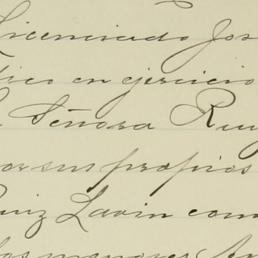 Licenciado Jos
tico en ejercicio
Señora Ruiz
por sus propios
Ruiz Lavin com
los menores